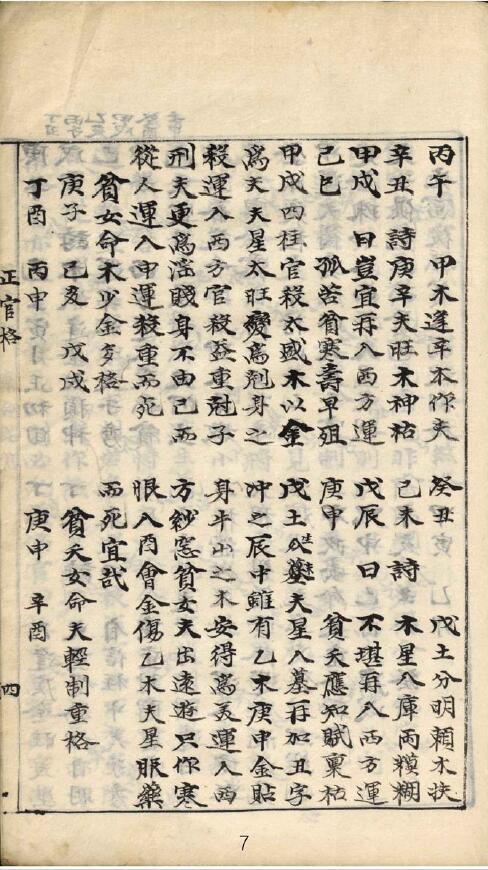 丙午 甲木逢辛本作夫
辛丑 詩 庚辛夫旺木神祐
甲戌 曰 豈宜再入西方運
己巳 孤苦貧寒壽早殂
甲戌四柱官殺太盛木以金
為夫夫星太旺變為剋身之
殺運入西方官殺益重尅子
刑夫更為淫賤身不由己而
從人運入申運殺重而死
貧女命木少金多格
庚子 己亥 戊戌
丁酉 丙申
癸丑 戊土分明賴木扶
己未 詩 木星入庫兩糢糊
戊辰 曰 不堪再入西方運
庚申 貧夭應知賦稟枯
戊土墓夫星入墓再加丑字
冲之辰中雖有乙木庚申金貼
身半出之木安得為美運入西
方紗窓貧女夫出遠遊只作寒
眼入酉會金傷乙木夫星服藥
而死宜哉
貧夭女命夫輕制重格
庚申 辛酉
正官格
四
7